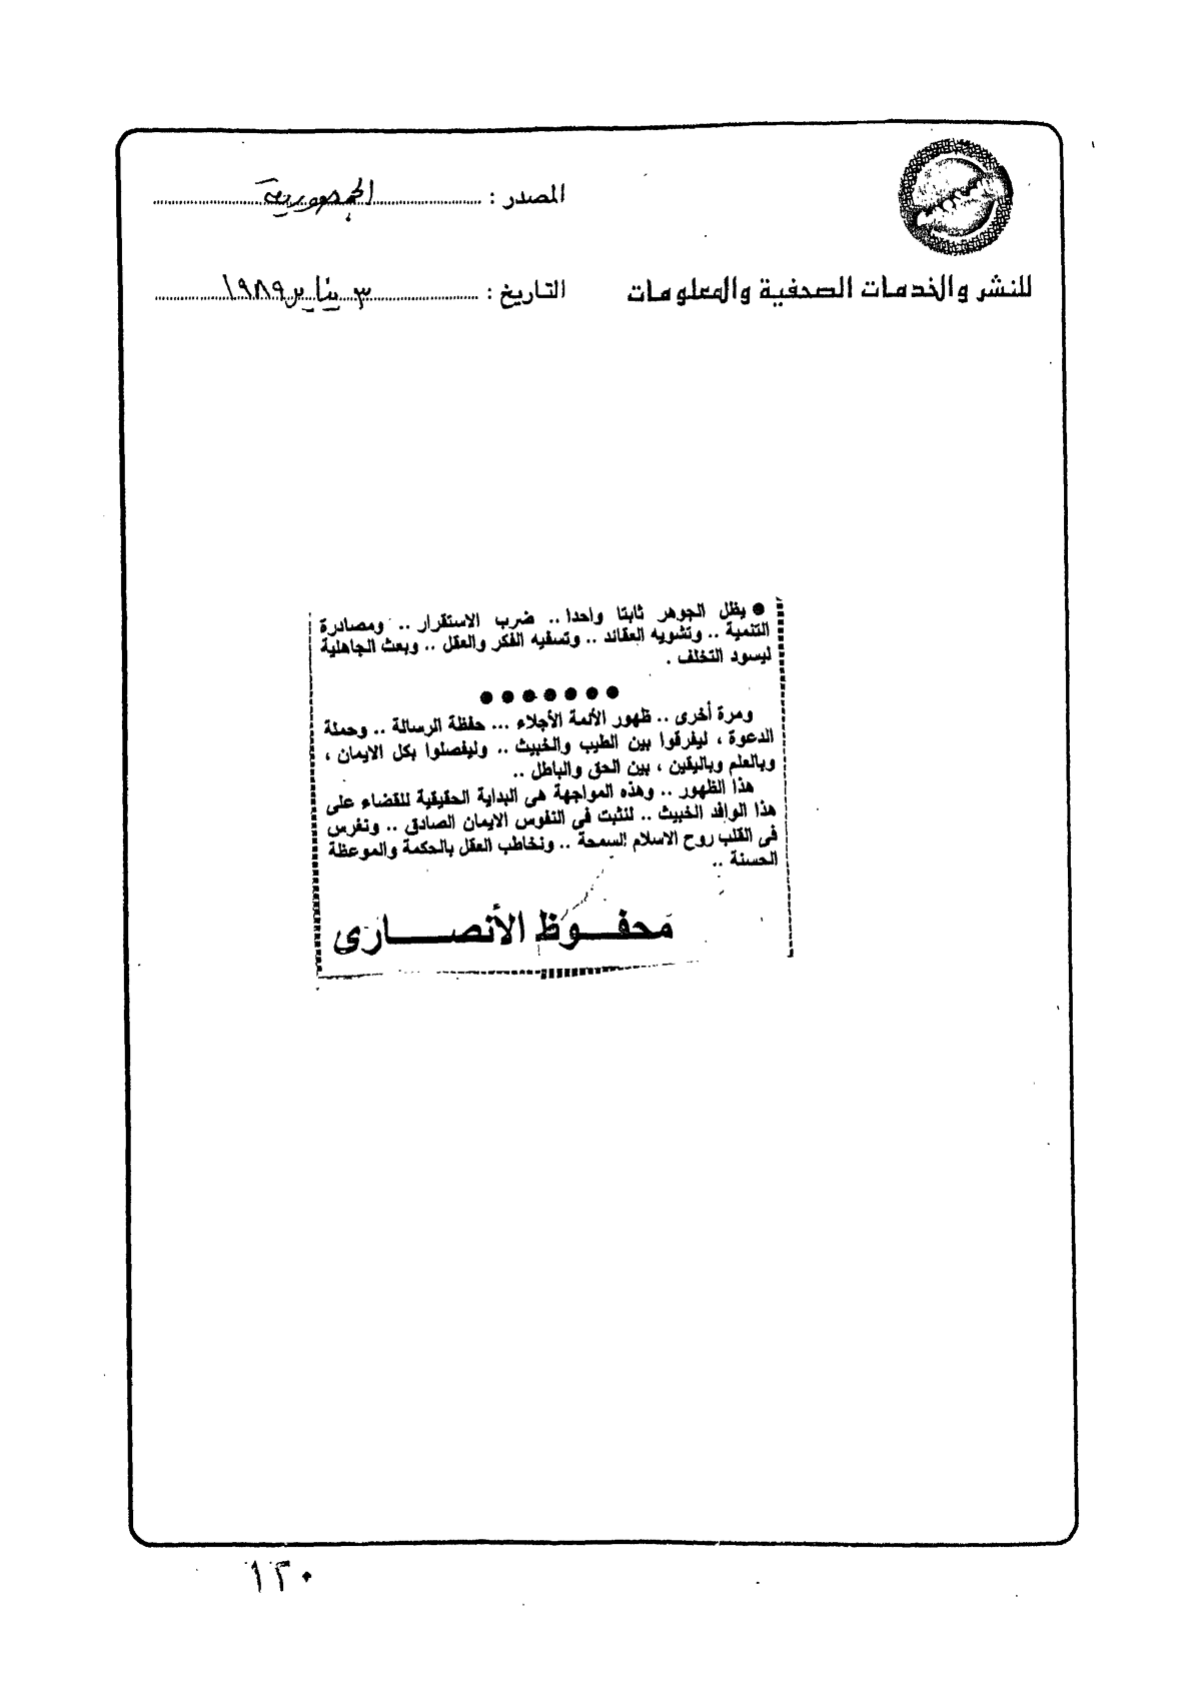 المصدر : الجمهورية
للنشر والخدمات الصحفية والمعلومات
التاريخ : ٣ يناير ١٩٨٩
● يظل الجوهر ثابتا واحدا .. ضرب الاستقرار .. ومصادرة
التنمية .. وتشويه العقائد .. وتسفيه الفكر والعقل .. وبعث الجاهلية
ليسود التخلف .
●●●●●●●
ومرة أخرى .. ظهور الأئمة الأجلاء ... حفظة الرسالة .. وحملة
الدعوة ، ليفرقوا بين الطيب والخبيث .. وليفصلوا بكل الايمان ،
وبالعلم وباليقين ، بين الحق والباطل ..
هذا الظهور .. وهذه المواجهة هى البداية الحقيقية للقضاء على
هذا الوافد الخبيث .. لنثبت فى النفوس الايمان الصادق .. ونغرس
فى القلب روح الاسلام السمحة .. ونخاطب العقل بالحكمة والموعظة
الحسنة ..
محفوظ الأنصارى
١٣٠